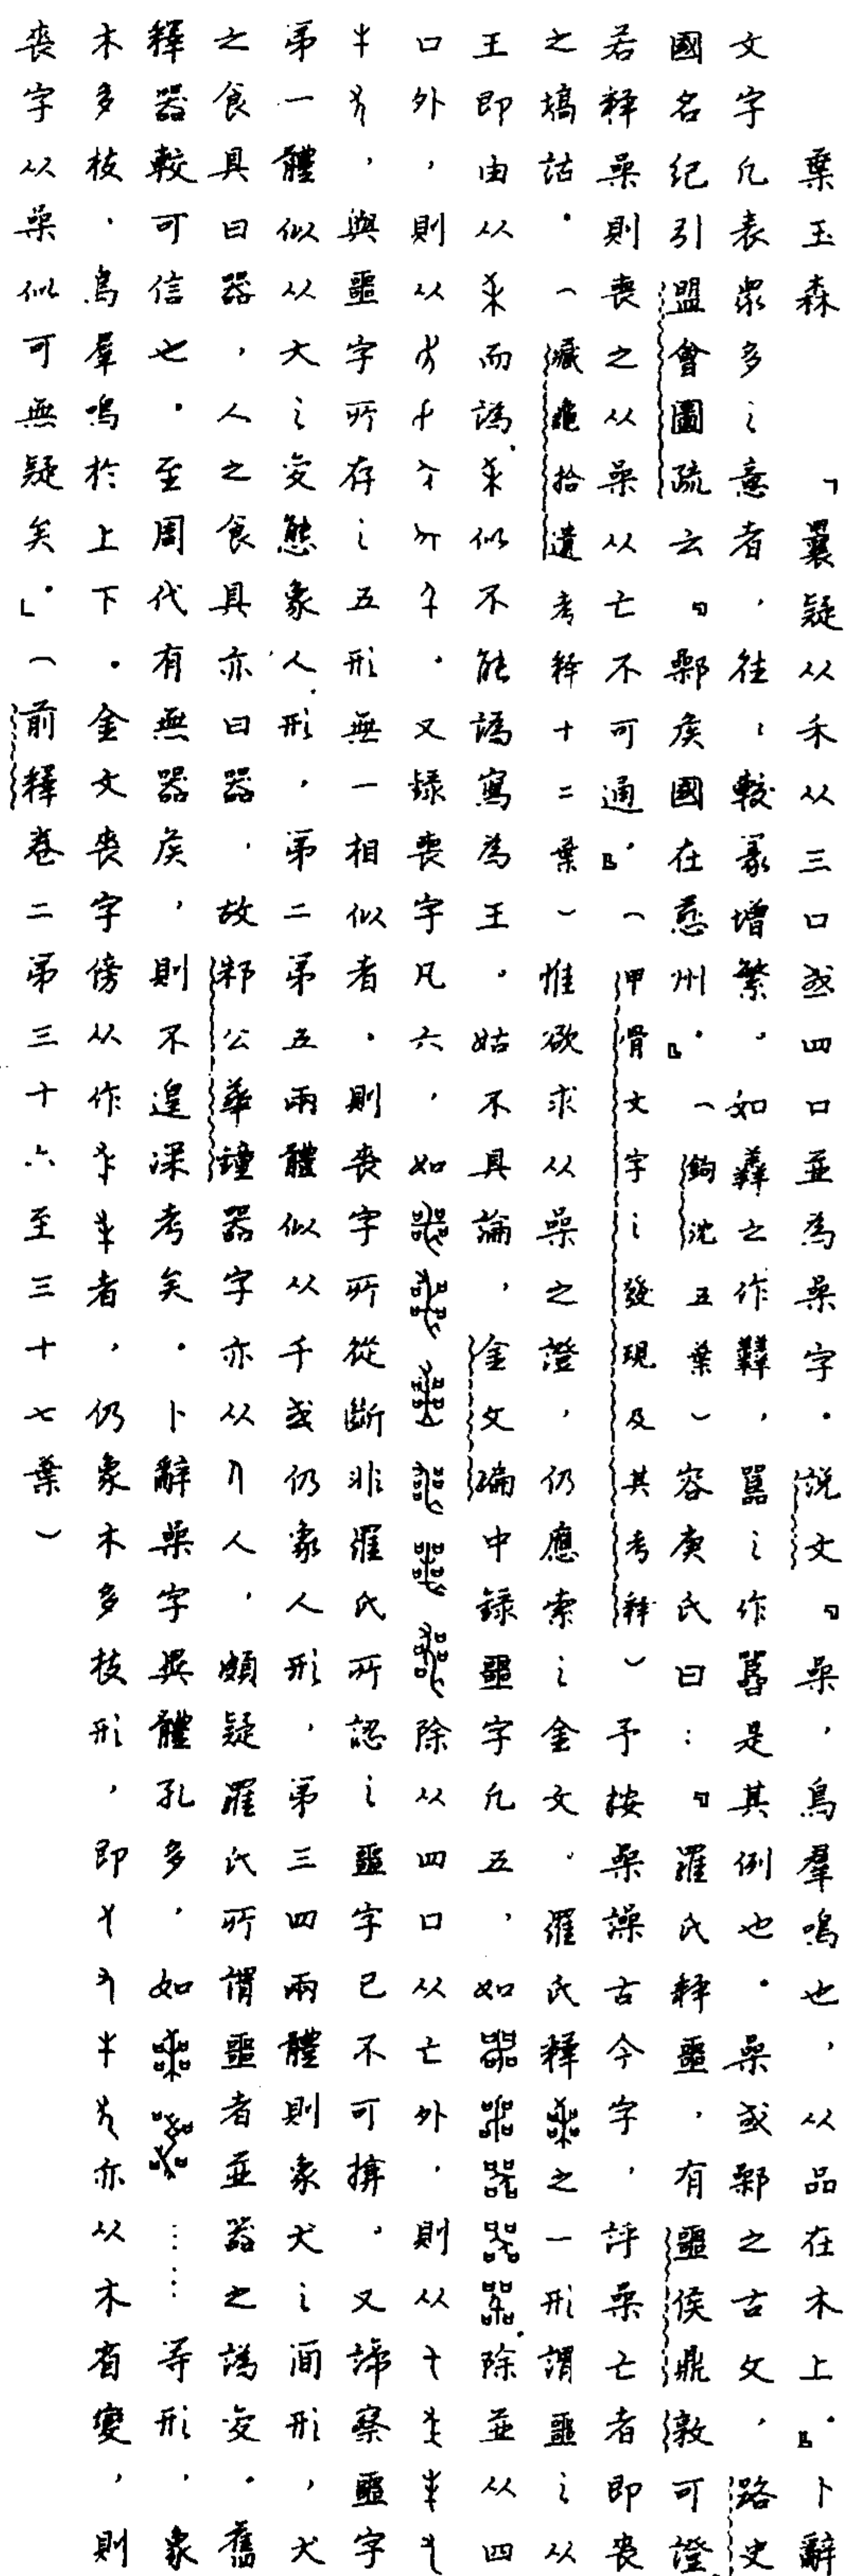 葉玉森　「㗊疑从禾从三口或四口並為喿字。說文『喿，鳥羣鳴也，从品在木上。』卜辭
文字凡表眾多之意者，往往較篆增繁。如羴之作，嚚之作是其例也。喿或鄵之古文，路史
國名紀引盟會圖疏云『鄵矦國在慈州。』（鉤沈五葉）容庚氏曰：『羅氏釋噩，有噩侯鼎敦可證
若釋喿則喪之从喿从亡不可通。』（甲骨文字之發現及其考釋）予按喿譟古今字，評喿亡者即喪
之塙詁。（藏龜拾遺考釋十二葉）惟欲求从喿之證，仍應索之金文。羅氏釋之一形謂噩之从
王即由从而譌，似不能譌寫為王。姑不具論，金文編中錄噩字凡五，如除並从四
口外，則从。又錄喪字凡六，如除从四口从亡外，則从
，與噩字所存之五形無一相似者。則喪字所從斷非羅氏所認之噩字已不可揜。又諦察噩字
弟一體似从大之变態象人形，弟二弟五兩體似从千或仍象人形，弟三四兩體則象犬之㒳形，犬
之食具曰器，人之食具亦曰器，故邾公華鐘器字亦从人，頗疑羅氏所謂噩者並器之譌变。舊
釋器較可信也。至周代有無器矦，則不遑深考矣。卜辭喿字異體孔多，如……等形，象
木多枝，鳥羣鳴於上下。金文喪字傍从作者，仍象木多枝形，即亦从木省變，則
喪字从喿似可無疑矣。」（前釋卷二弟三十六至三十七葉）